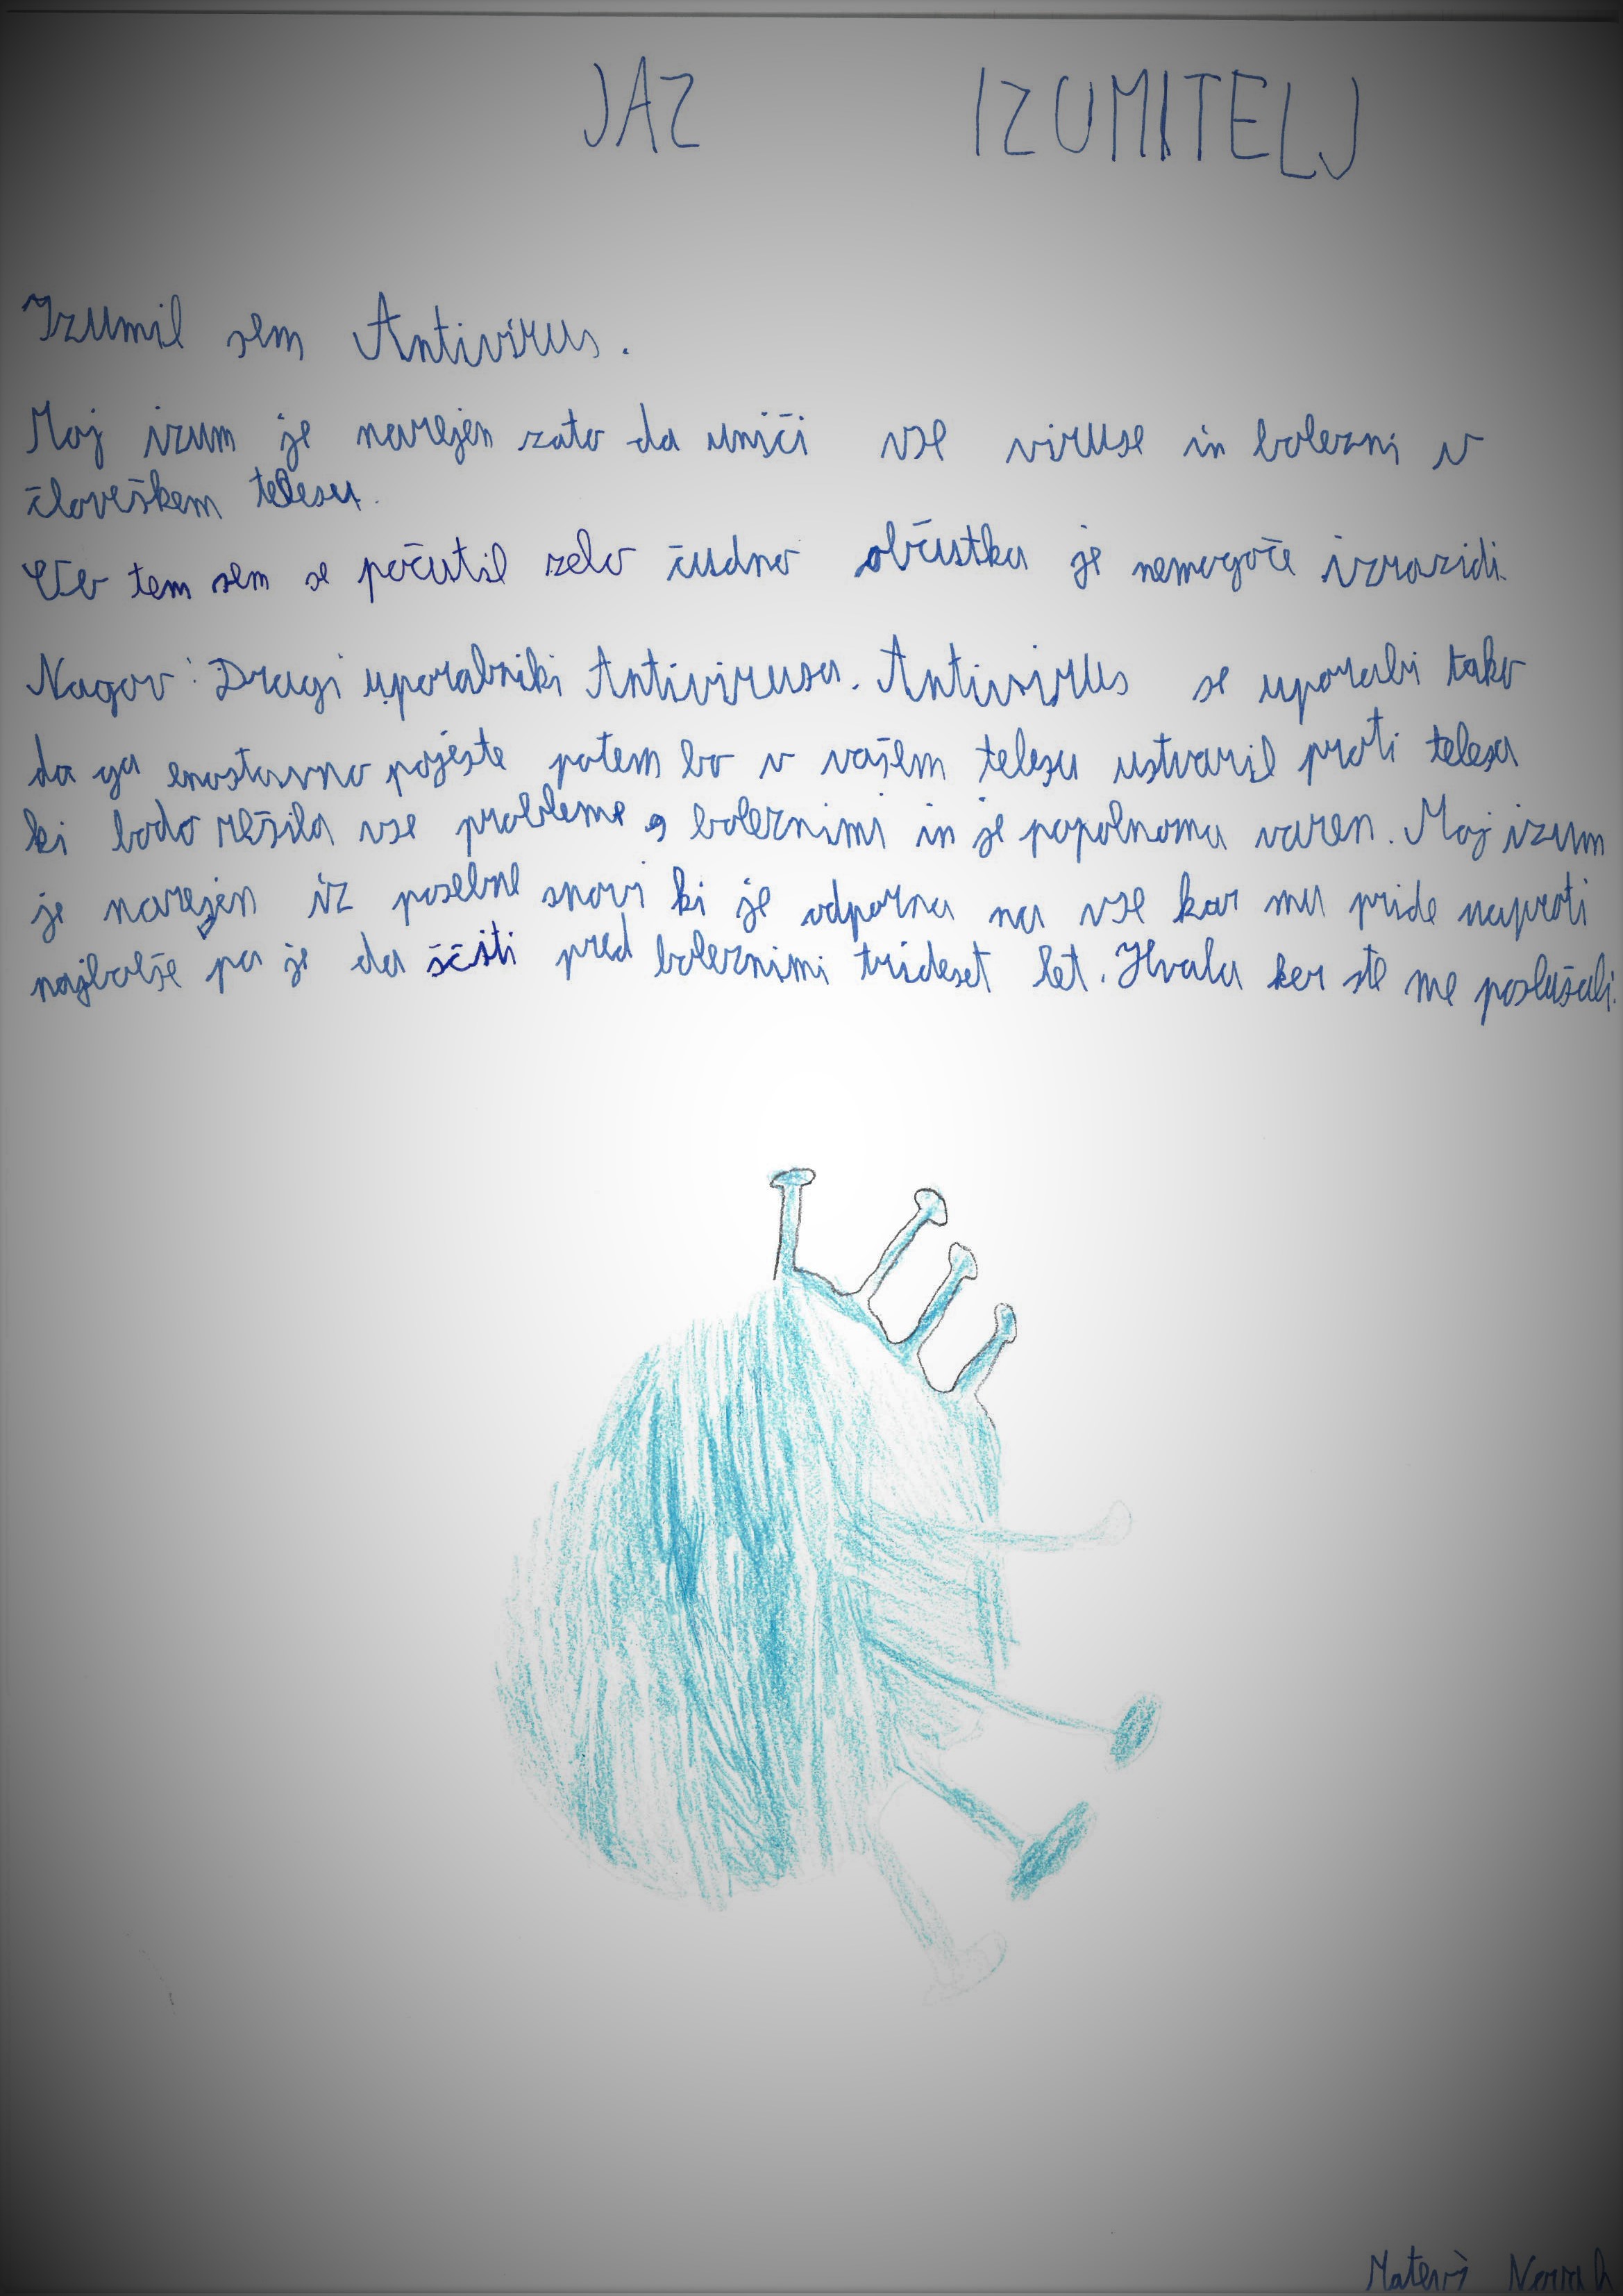 JAZ IZUMITELJ
Izumil sem Antivirus.
Moj izum je narejen zato da uniči vse viruse in bolezni v
človeškem telesu.
Ob tem sem se počutil zelo čudno občustka je nemogoče izrazidi.
Nagov: Dragi uporabniki Antivirusa. Antivirus se uporabi tako
da ga enostavno pojeste potem bo v vašem telesu ustvaril proti telesa
ki bodo rešila vse probleme z boleznimi in je popolnoma varen. Moj izum
je narejen iz posebne snovi ki je odporna na vse kar mu pride naproti
najbolše pa je da ščiti pred boleznimi trideset let. Hvala ker ste me poslušali.
Matevž